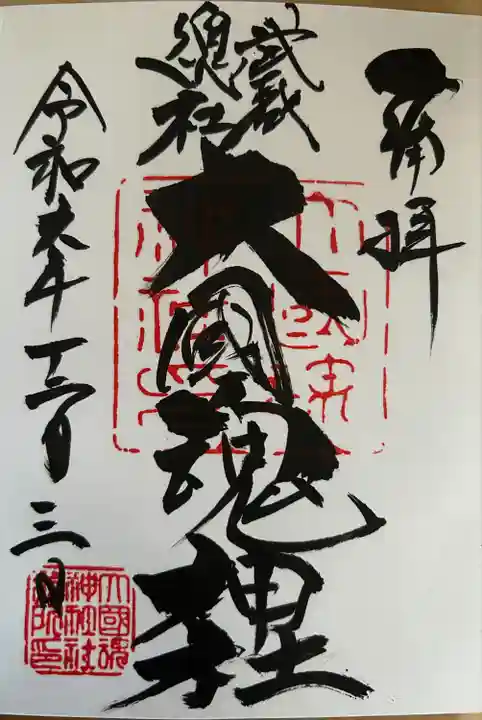 奉拝
武蔵
總社
大國魂神社
令和六年十二月三日
大國魂
神社社
務所印